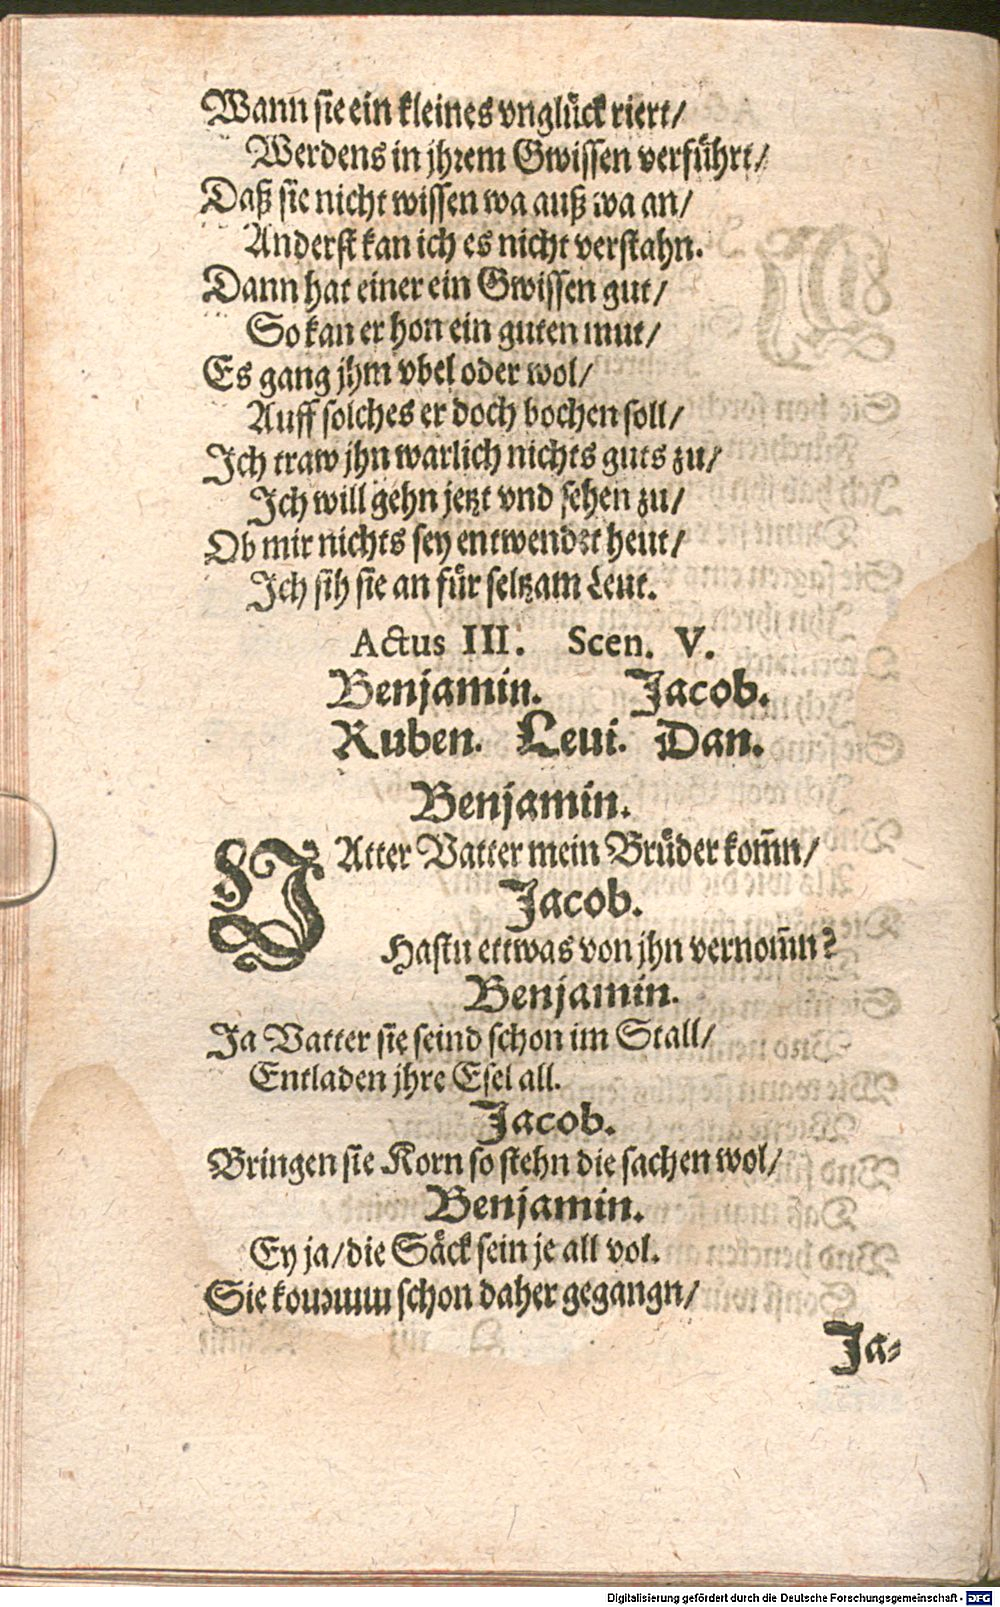 Wann sie ein kleines vnglück riert/
Werdens in jhrem Gwissen verführt/
Daß sie nicht wissen wa auß wa an/
Anderst kan ich es nicht verstahn.
Dann hat einer ein Gwissen gut/
So kan er hon ein guten mut/
Es gang jhm vbel oder wol/
Auff solches er doch bochen soll/
Ich traw jhn warlich nichts guts zu/
Ich will gehn jetzt vnd sehen zu/
Ob mir nichts sey entwendet heut/
Ich sih sie an für seltzam Leut.
Actus III. Scen. V.
Benjamin. Jacob.
Ruben. Leui. Dan.
Benjamin.
VAtter Vatter mein Brüder kom̃n/
Jacob.
Hastu ettwas von jhn vernom̃n?
Benjamin.
Ja Vatter sie seind schon im Stall/
Entladen jhre Esel all.
Jacob.
Bringen sie Korn so stehn die sachen wol/
Benjamin.
Ey ja/ die Säck sein je all vol.
Sie schon daher gegangn/
Ja-
Digitalisierung gefördert durch die Deutsche Forschungsgemeinschaft - DFG